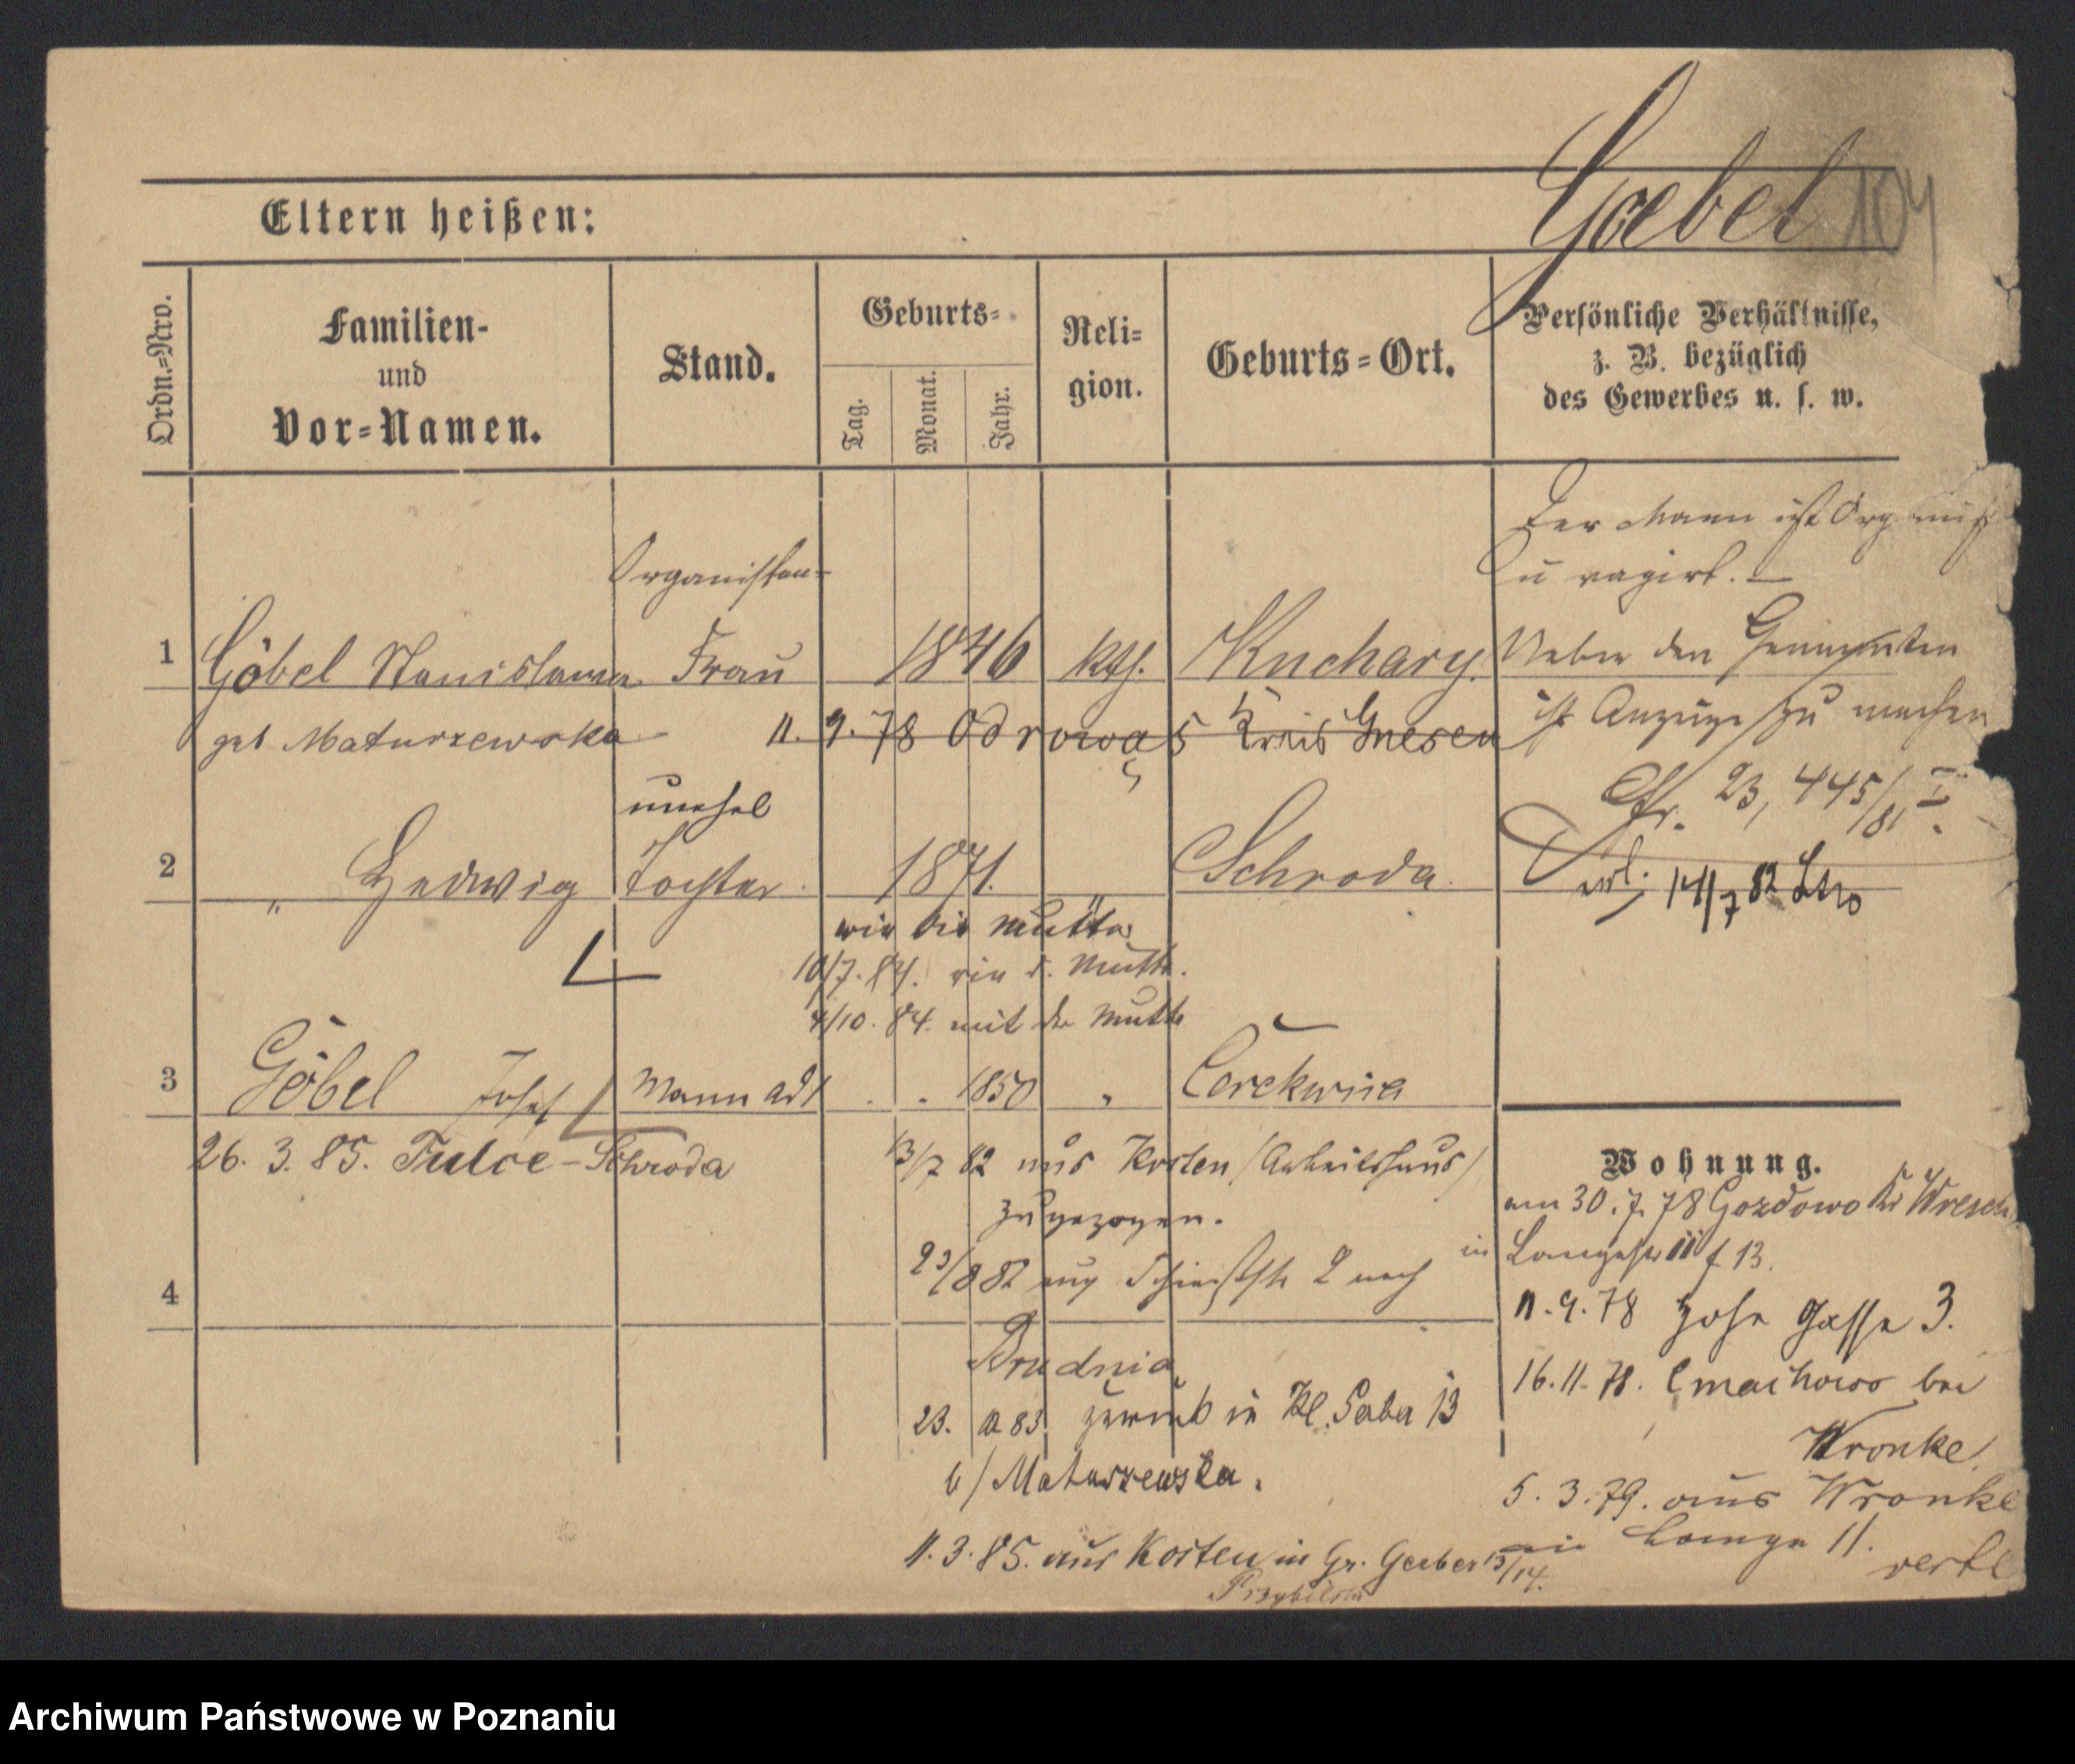 Goebel 104
Eltern heißen:
Ordn.-Nro.
Familien-
und
Vor-Namen.
Stand.
Geburts-
Tag.
Monat.
Jahr.
Reli-
gion.
Geburts-Ort.
Persönliche Verhältnisse,
z. B. bezüglich
des Gewerbes u. s. w.
Der Mann ist Organist
u vagirt. —
Organisten-
1 Göbel Stanislawa Frau 1846 kth. Kuchary.
Ueber den Genannten
geb Maturzewska 11. 9. 78 Odrowąs Kreis Gnesen
ist Anzeige zu machen
Cfr. 23,445/81 I.
unehel
2 " Hedwig Tochter 1871. " Schroda.
erl. 14/7 82
wie die Mutter
10/7. 84. wie d. Mutter.
4/10. 84. mit der Mutter
3 Göbel Josef Mann ad 1 . . 1850 " Cerekwica
26. 3. 85. Tulce - Schroda
13/7 82 aus Kosten (Arbeitshaus)
zugezogen.
23/8 82 aus 2 nach
4
Brudnia
23. 83 zurück in Kl. Gerber 13
b/ Maturzewska.
11. 3. 85. aus Kosten in Gr. Gerber 13/14.
Przybilski
Wohnung.
am 30. 7. 78 Gozdowo Kr Wresch
in Langestr 11 f 13.
11. 9. 78 hohe Gasse 3.
16. 11. 78. Cmachowo bei
Wronke.
5. 3. 79. aus Wronke
in Lange 11.